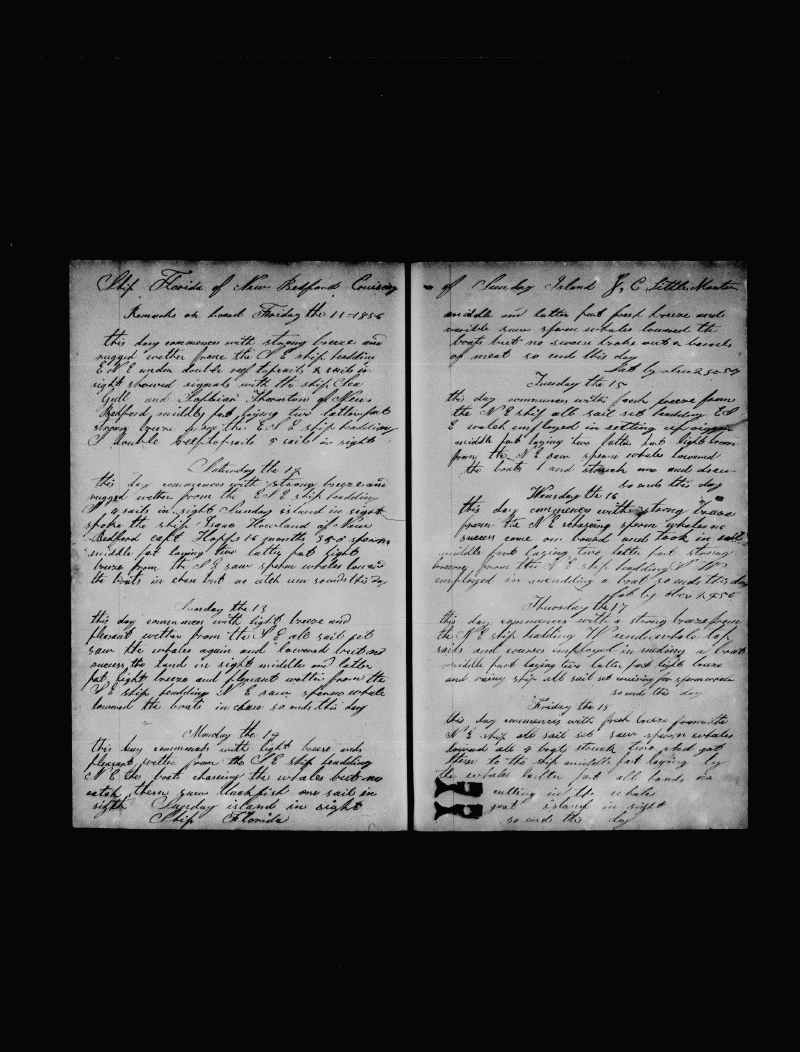 Ship Florida of New Bedford Cruising
Remarks on board Friday the 11-1856
this day commences with strong breeze and
rugged wether from the S E ship heading
E N E under double reef topsails 2 sails in
sight showed signals with the ship Sea
Gull and Thornton of New
Bedford middle pat laying two latter pat
strong breeze from the E S E ship heading
S double reef topsails 5 sails in sight
Saturday the 12
this day commences with strong breeze and
rugged wether from the E N E ship heading
S 4 sails in sight Sunday island in sight
spoke the ship Isaac Howland of New
Bedford capt Hopps 16 months 350 sperm
middle pat laying two latter pat light
breeze from the S E saw sperm whales lowerd
the boats in chase but no so ends this day
Sunday the 13
this day commences with light breeze and
plesant wether from the S E all sail set
saw the whales again and lowered but no
success the land in sight middle and latter
pat light breeze and plesant wether from the
S E ship heading N E saw sperm whale
lowered the boats in chase so ends this day
Monday the 14
this day commences with light breeze and
plesant wether from the S E ship heading
N E the boats chaseing the whales but no
catch them saw blackfish one sail in
sigth Sunday island in sight
Ship Florida
of Sunday Island J, C Little Master
middle and latter part fresh breeze and
saw sperm whales lowered the
boats but no broke out a barels
of meat so ends this day
Lat by
Tuesday the 15
this day commences with fresh breeze from
the N E ship all sail set heading E S
E watch employed in setting up
middle part laying two latter part light breeze
from the N E saw sperm whales lowered
the boats and struck one and
so ends this day
Wensday the 16
this day commences with strong breze
from the N E chaseing sperm whales no
success come on bourd and took in sail
middle part laying two latter part strong
breeze from the N E ship heading S W
employed in mendding a boat so ends this day
Lat by
Thursday the 17
this day commences with a strong breeze from
the N E ship heading W under whole top
sails and courses imployed in making a boat
middle part laying two latter part light breeze
and rainy ship all sail set cruising for sperm whale
so ends this day
Friday the 18
this day commences with fresh breeze from the
N E ship all sail set saw sperm whales
lowred all 4 boats struck two and got
them to the ship middle part laying by
the whales latter part all hands is
cutting in the whales
goat island in sight
so ends this day